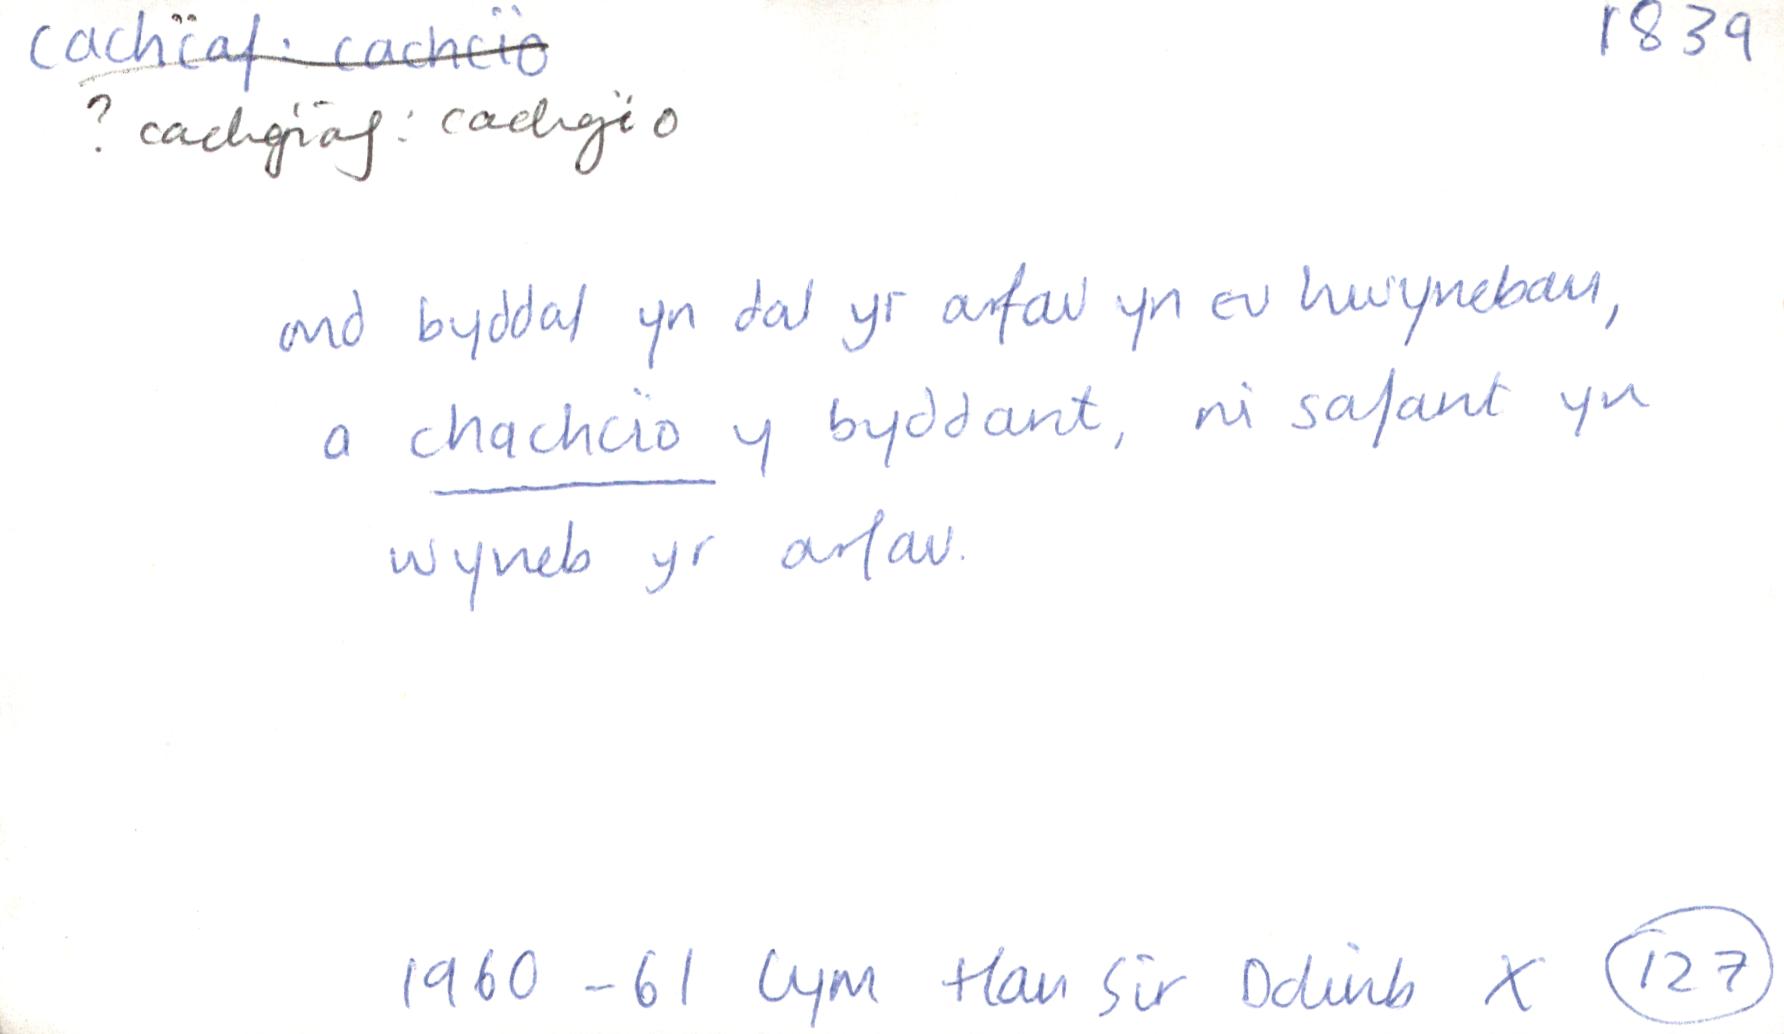 cachciaf: cachcïo 1839
? cachgïaf: cachgïo
ond byddaf yn dal yr arfau yn eu hwynebau,
a chachcïo y byddant, ni safant yn
wyneb yr arfau.
1960-61 Cym Han Sir Ddinb X 127